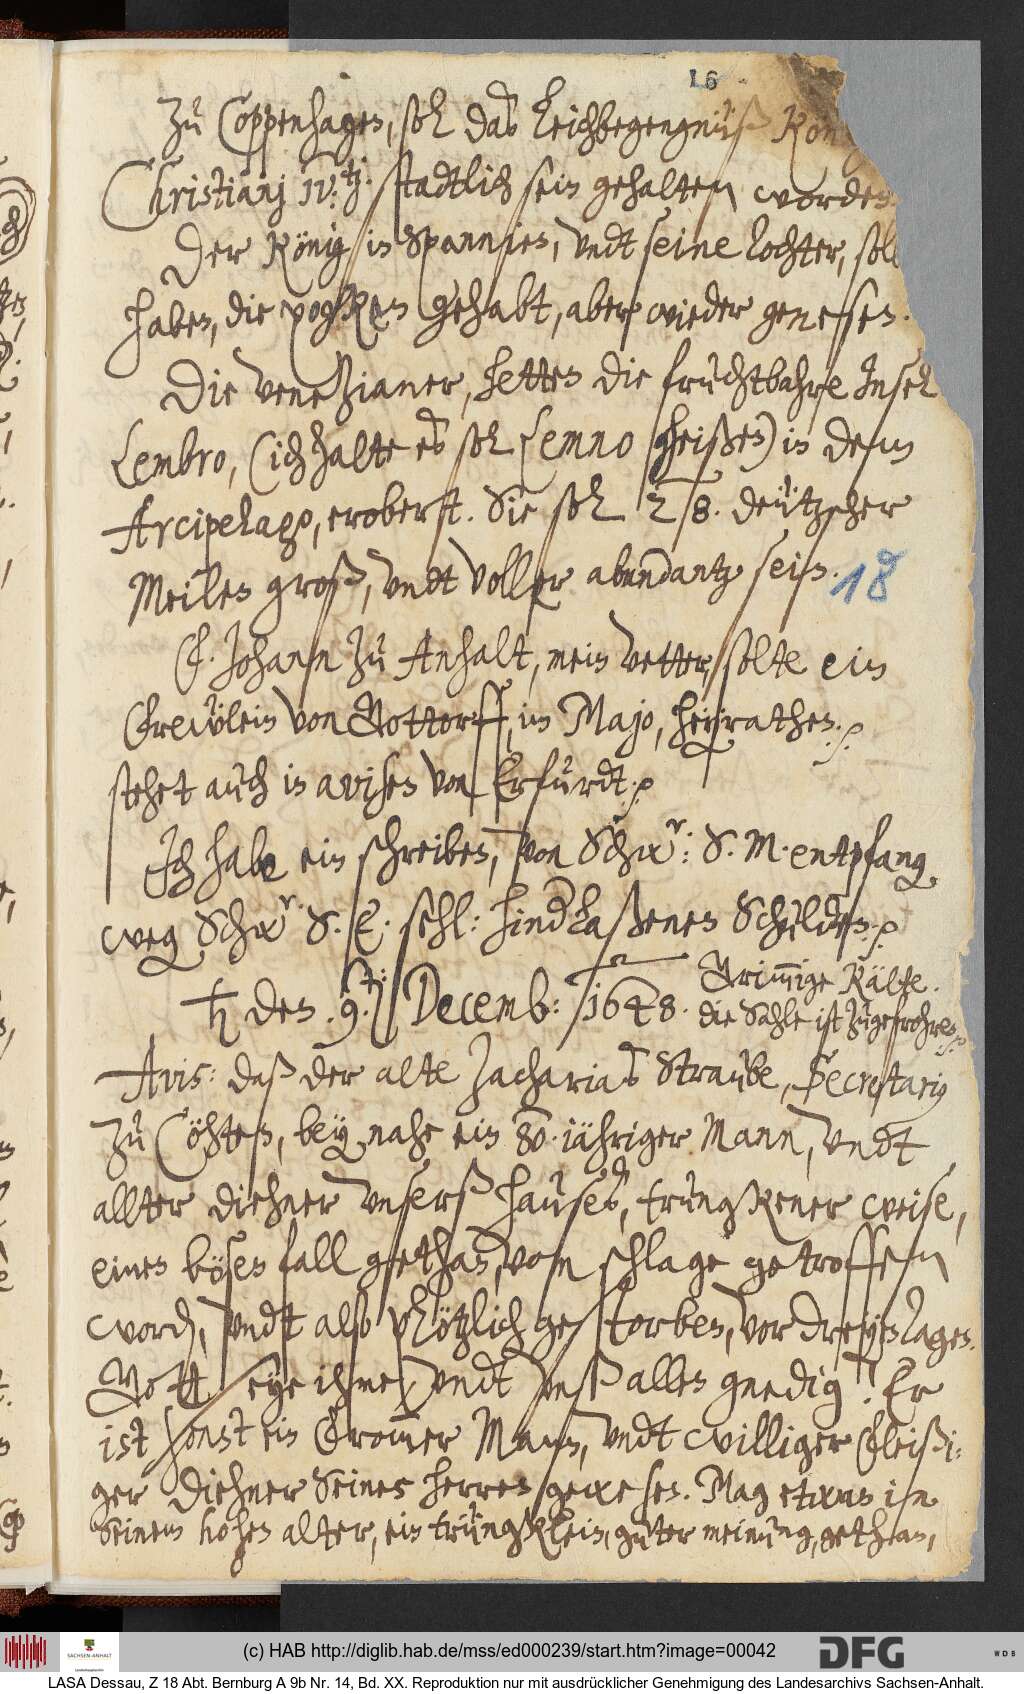 16
Zu Coppenhagen, soll das Leichbegengnüß König
Christianj IV.tj. stadtlich sein gehalten worden.
Der König in Spannien, undt seine Tochter, soll
haben, die pogken gehabt, aber wieder genesen.
Die Venezianer, hetten die fruchtbahre Insel
Lembro, (ich halte es soll Lemno heißen) in dem
Arcipelago, erobert. Sie soll 28. deützscher
Meilen groß, undt voller abundantz sein.
18
F. Johann zu Anhalt, mein vetter, solte ein
Frewlein von Gottorff, in Majo, heyrathen. p
stehet auch in avisen von Erfurdt. p
Ich habe ein schreiben, von Schwr: S. M. entpfang
weg Schwr S. E. sehl: hind'laßenen Schulden. p
♄ den 9.t: Decemb: 1648.
Grimmige Kälte.
die Sahle ist zugefrohren. p
Avis: daß der alte Zacharias Straube, Secretarius
zu Cöhten, bey nahe ein 80. iähriger Mann, undt
allter diehner unserß hauses, trungkener weise,
einen bösen fall gethan, vom schlage getroffen
word, undt also plötzlich gestorben, vor dreyen tagen.
Gott seye ihme, undt unß allen gnedig! Er
ist sonst ein Frommer Mann, undt williger Fleißi:
ger diehner Seines herren gewesen. Mag etwas in
Seinem hohen alter, ein trüngklein, guter meinung, gethan,
(c) HAB http://diglib.hab.de/mss/ed000239/start.htm?image=00042
SACHSEN-ANHALT
DFG
WDB
LASA Dessau, Z 18 Abt. Bernburg A 9b Nr. 14, Bd. XX. Reproduktion nur mit ausdrücklicher Genehmigung des Landesarchivs Sachsen-Anhalt.